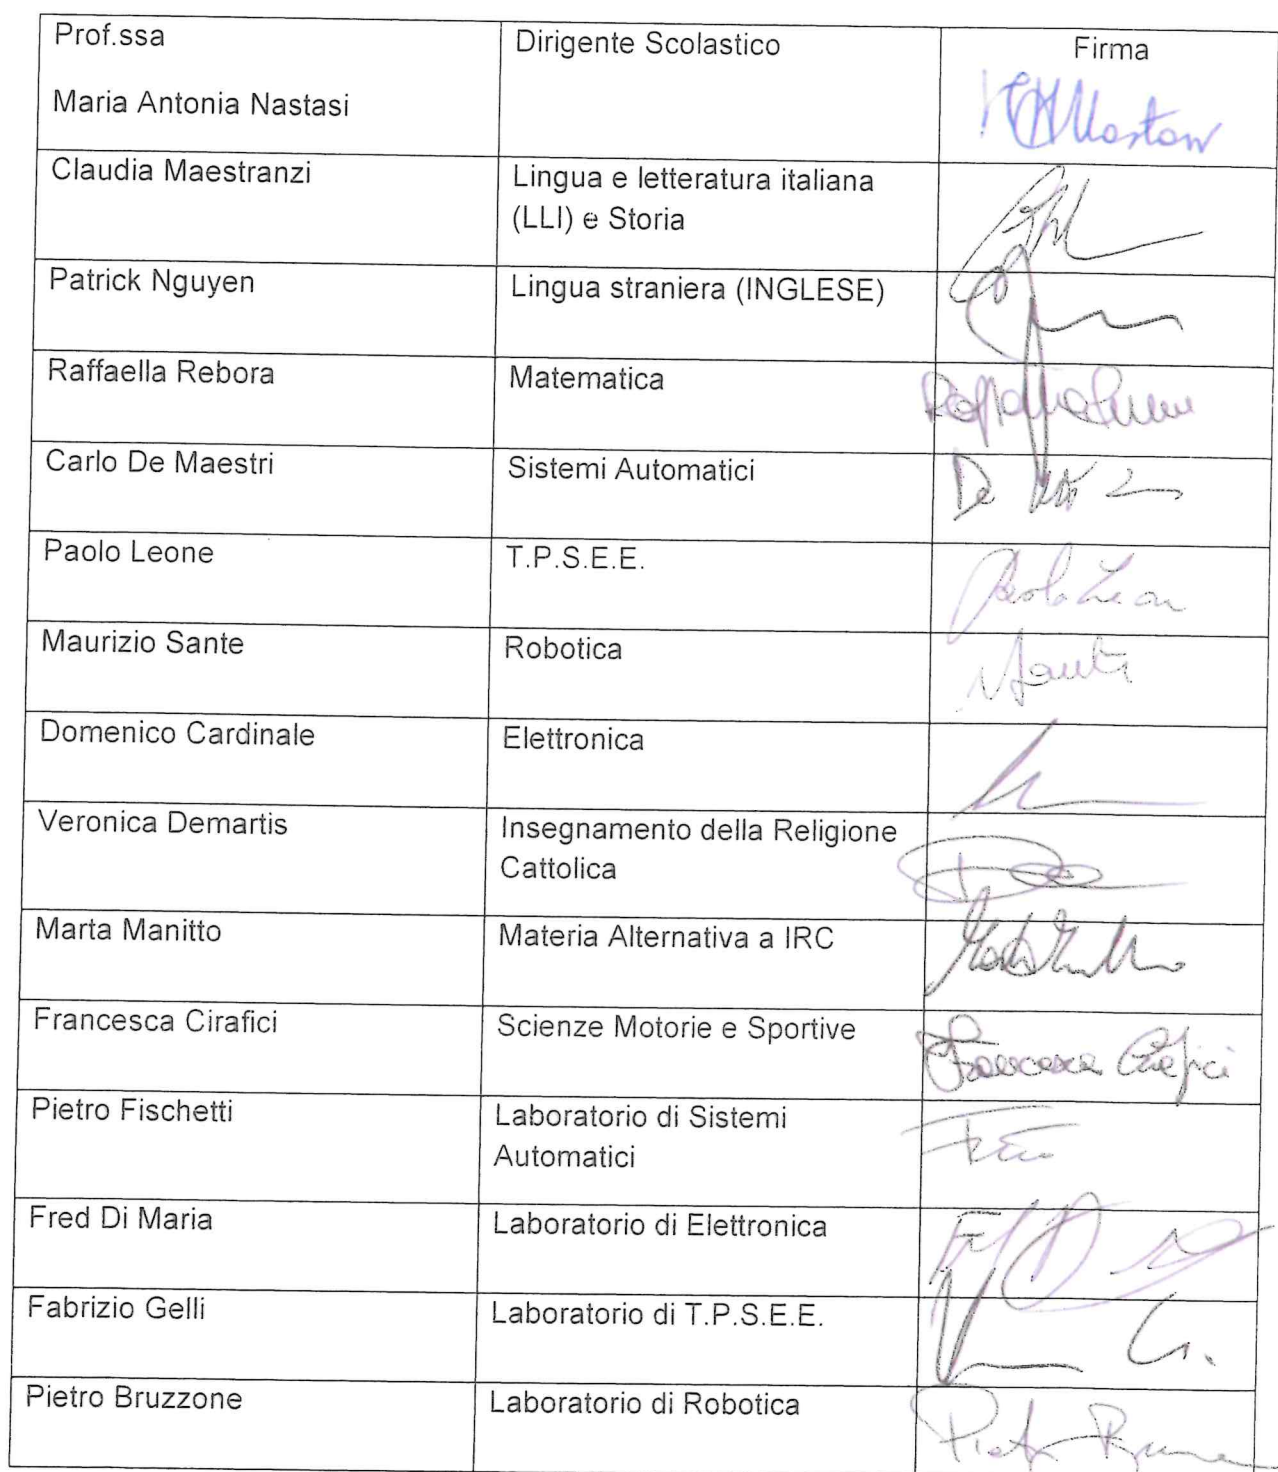 Prof.ssa
Maria Antonia Nastasi
Dirigente Scolastico
Firma
Claudia Maestranzi
Lingua e letteratura italiana
(LLI) e Storia
Patrick Nguyen
Lingua straniera (INGLESE)
Raffaella Rebora
Matematica
Carlo De Maestri
Sistemi Automatici
De
Paolo Leone
T.P.S.E.E.
Paolo Leon
Maurizio Sante
Robotica
Domenico Cardinale
Elettronica
Veronica Demartis
Insegnamento della Religione
Cattolica
Marta Manitto
Materia Alternativa a IRC
Francesca Cirafici
Scienze Motorie e Sportive
Francesca Cirafici
Pietro Fischetti
Laboratorio di Sistemi
Automatici
Fred Di Maria
Laboratorio di Elettronica
Fabrizio Gelli
Laboratorio di T.P.S.E.E.
G.
Pietro Bruzzone
Laboratorio di Robotica